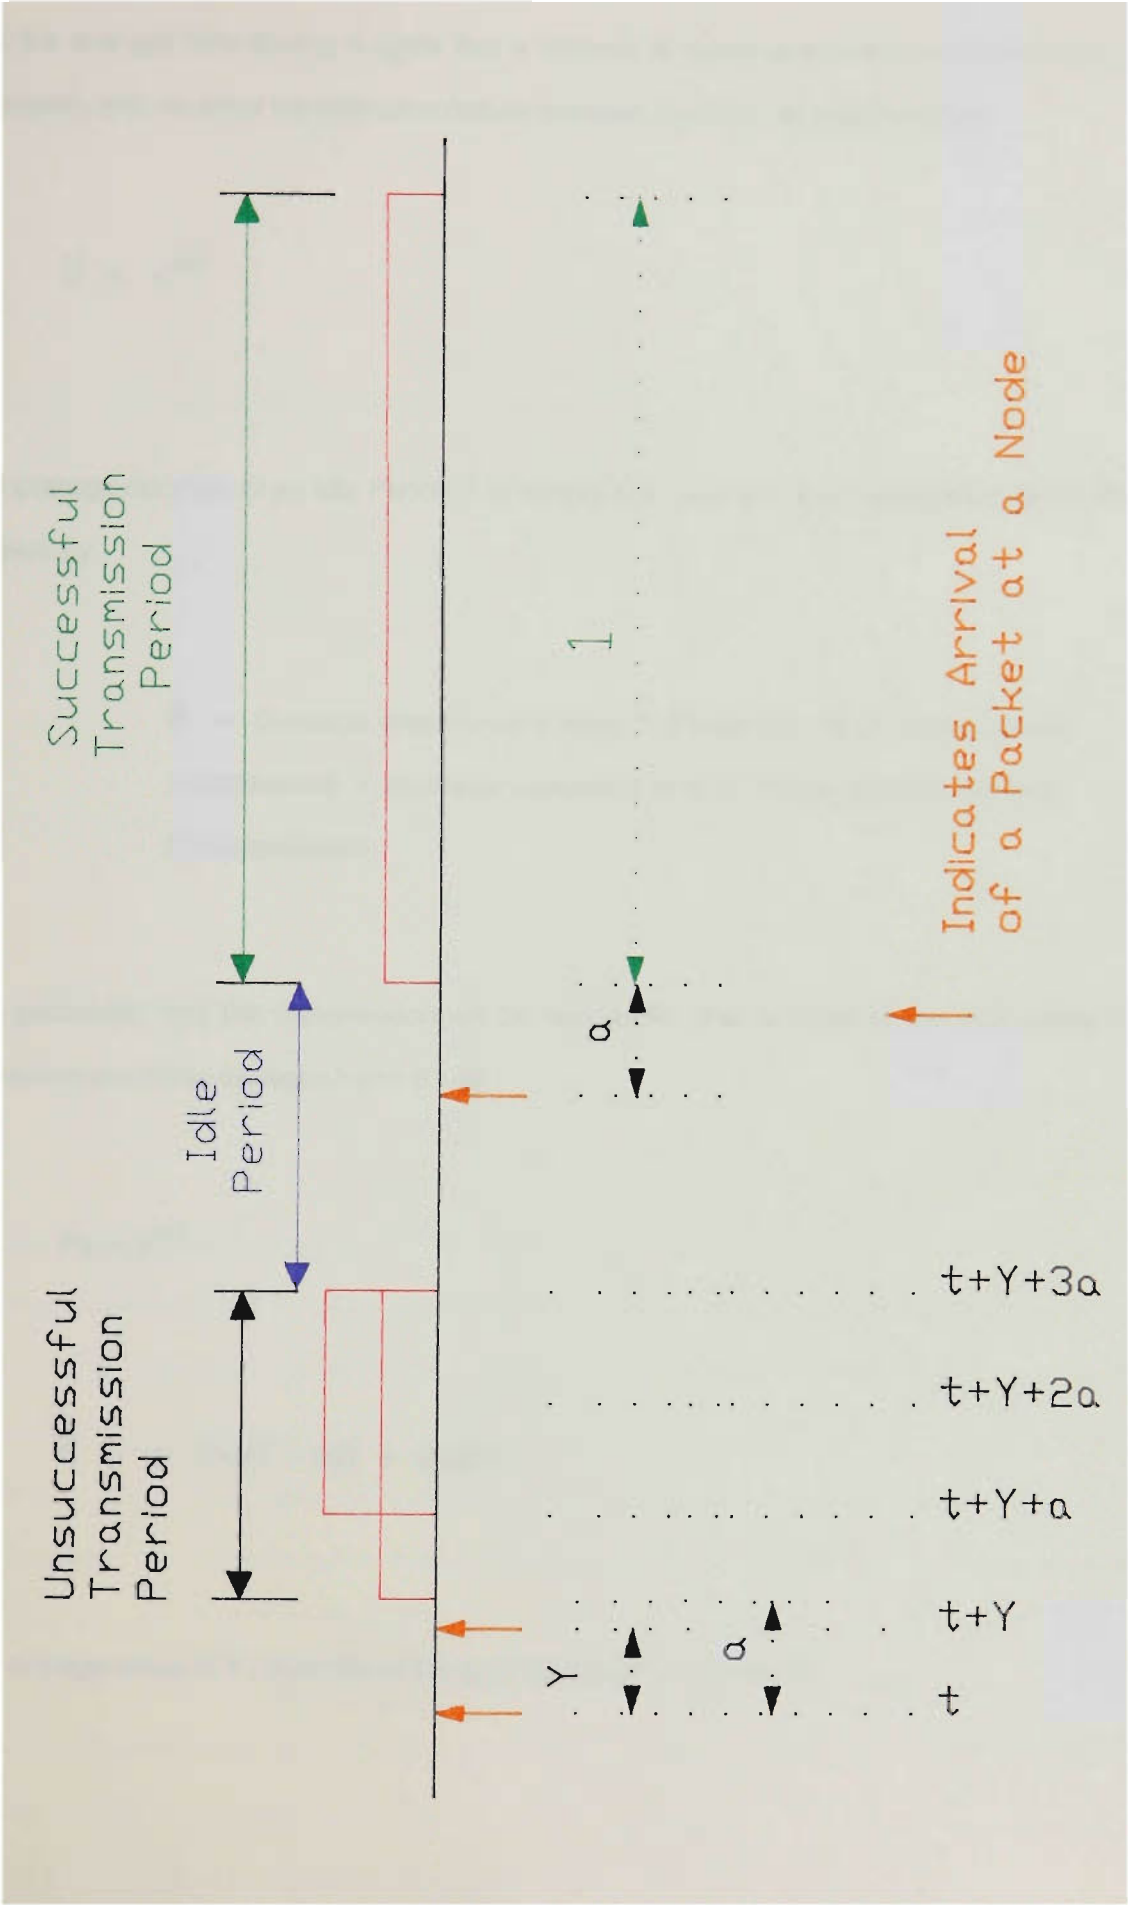 Unsuccessful
Transmission
Period
Idle
Period
Successful
Transmission
Period
Y
a
a
1
t
t+Y
t+Y+a
t+Y+2a
t+Y+3a
Indicates Arrival
of a Packet at a Node